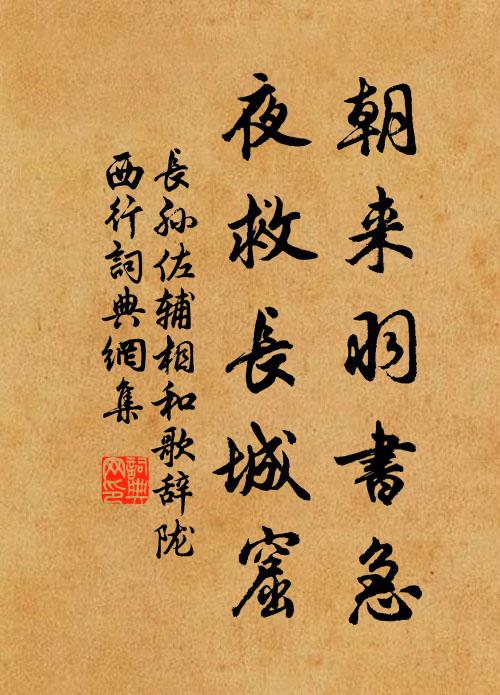 朝来羽書急
夜救長城窟
長孫佐輔相和歌辞陇
西行詞典網集
詞典
网印